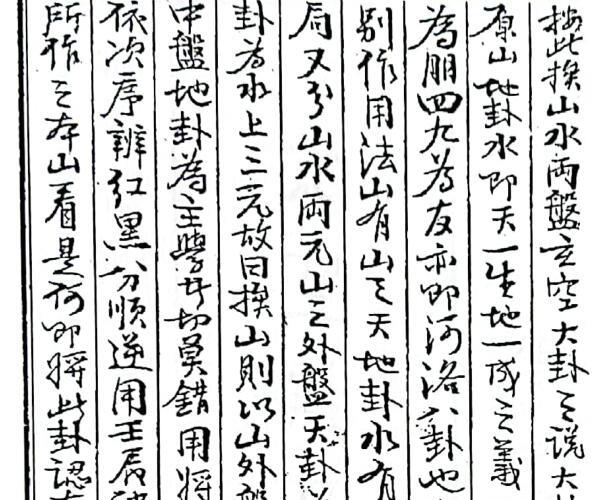 按此挨山水両盤玄空大卦之说大
原山地卦水即天一生地一成之義
為朋四九為友亦即河洛八卦也
别作用法山有山之天地卦水有
局又分山水両元山之外盤天卦
卦為水上三元故曰挨山則以山外盤
中盤地卦為主學者切莫錯用将
依次序辨红黑分順逆用壬辰
所作之本山看是何即将此卦認